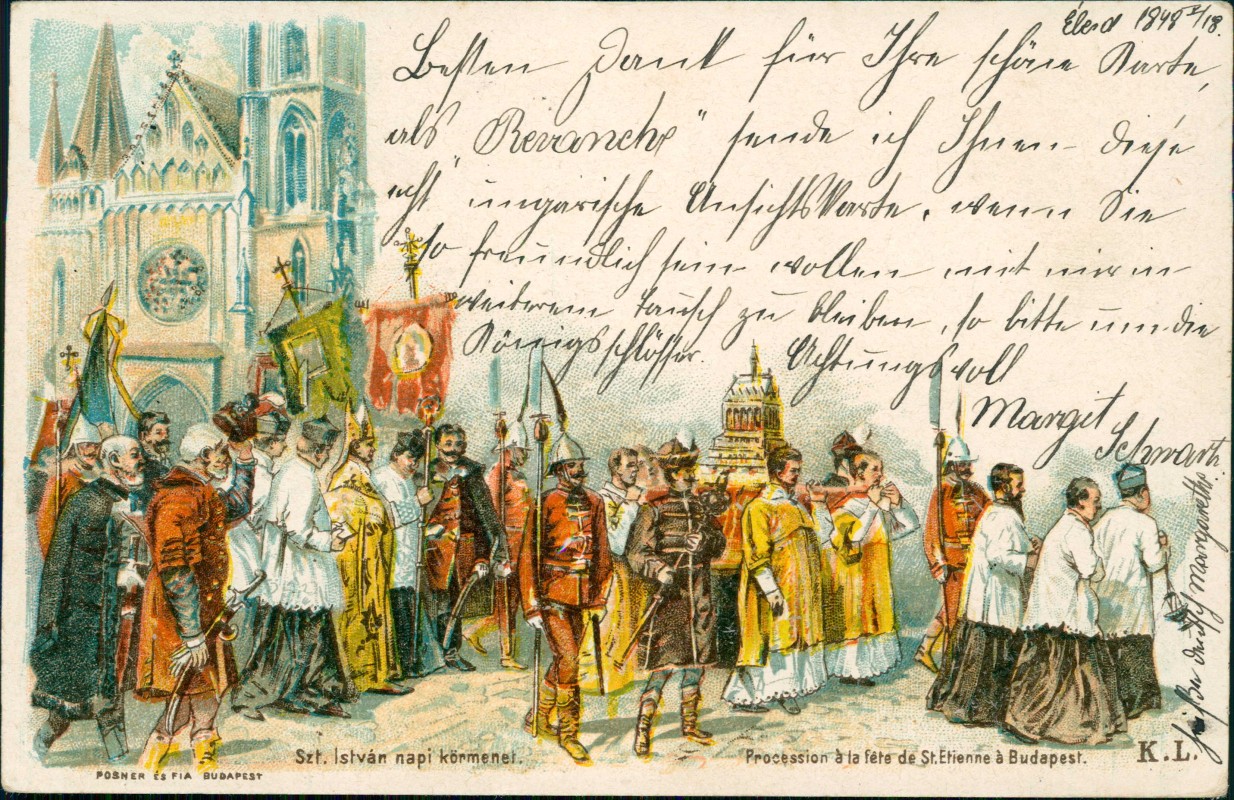 Élesd 1898 I/18.
Besten Dank für Ihre schöne Karte,
als "Revanche" sende ich Ihnen diese
echt ungarische Ansichtskarte. wenn Sie
so freundlich sein wollen mit mir in
weiterem Tausch zu bleiben, so bitte um die
Königsschlösser. Achtungsvoll
Margit
Schwartz
heiße deutsch Margarethe.
Szt. István napi körmenet.
Procession à la fête de St. Etienne à Budapest.
K. L.
POSNER ÉS FIA BUDAPEST